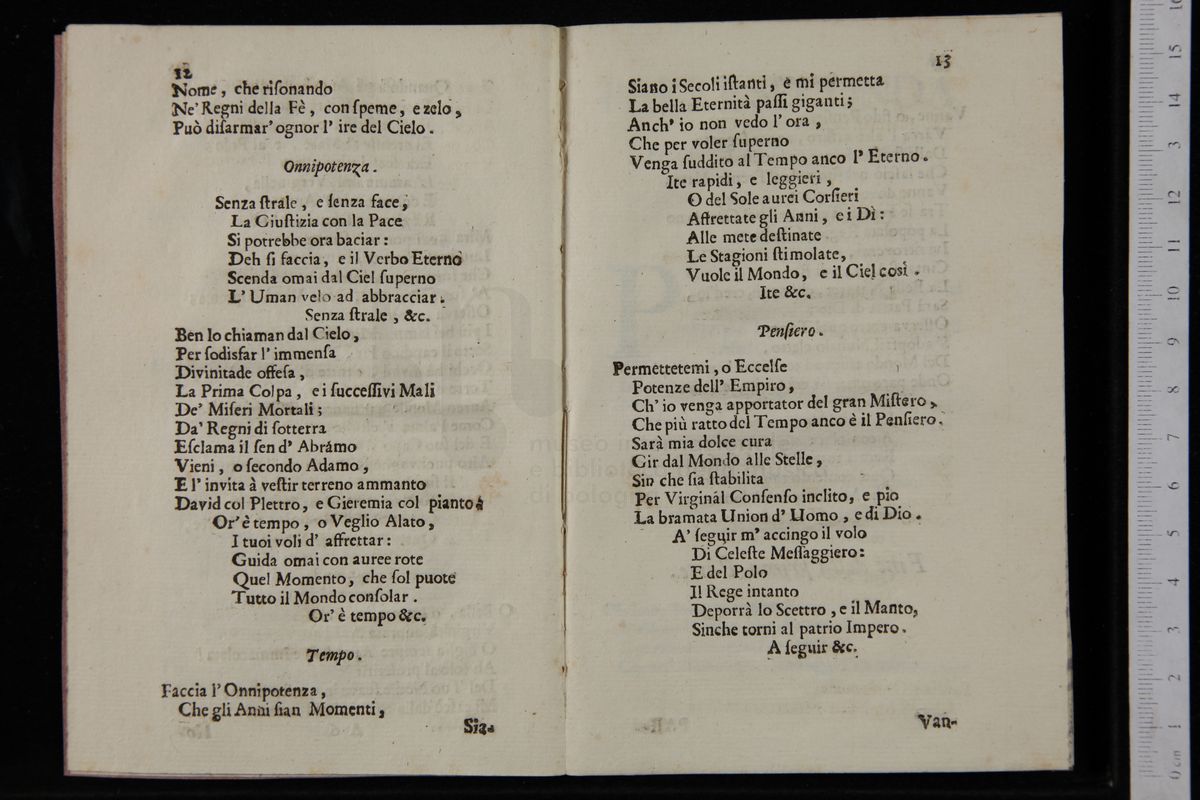 12
Nome, che riſonando
Ne' Regni della Fè, con ſpeme, e zelo,
Può diſarmar' ognor l' ire del Cielo.
Onnipotenza.
Senza ſtrale, e ſenza face,
La Giuſtizia con la Pace
Si potrebbe ora baciar:
Deh ſi faccia, e il Verbo Eterno
Scenda omai dal Ciel ſuperno
L' Uman velo ad abbracciar.
Senza ſtrale, &c.
Ben lo chiaman dal Cielo,
Per ſodisfar l' immenſa
Divinitade offeſa,
La Prima Colpa, e i ſucceſſivi Mali
De' Miſeri Mortali;
Da' Regni di ſotterra
Eſclama il ſen d' Abrámo
Vieni, o ſecondo Adamo,
E l' invita à veſtir terreno ammanto
David col Plettro, e Gieremia col pianto.
Or' è tempo, o Veglio Alato,
I tuoi voli d' affrettar:
Guida omai con auree rote
Quel Momento, che ſol puote
Tutto il Mondo conſolar.
Or' è tempo &c.
Tempo.
Faccia l' Onnipotenza,
Che gli Anni ſian Momenti,
Sia-
13
Siano i Secoli iſtanti, e mi permetta
La bella Eternità paſſi giganti;
Anch' io non vedo l' ora,
Che per voler ſuperno
Venga ſuddito al Tempo anco l' Eterno.
Ite rapidi, e leggieri,
O del Sole aurei Corſieri
Affrettate gli Anni, e i Dì:
Alle mete deſtinate
Le Stagioni ſtimolate,
Vuole il Mondo, e il Ciel così.
Ite &c.
Penſiero.
Permettetemi, o Eccelſe
Potenze dell' Empiro,
Ch' io venga apportator del gran Miſtero,
Che più ratto del Tempo anco è il Penſiero.
Sarà mia dolce cura
Gir dal Mondo alle Stelle,
Sin che ſia ſtabilita
Per Virginál Conſenſo inclito, e pio
La bramata Union d' Uomo, e di Dio.
A' ſeguir m' accingo il volo
Di Celeſte Meſſaggiero:
E del Polo
Il Rege intanto
Deporrà lo Scettro, e il Manto,
Sinche torni al patrio Impero.
A ſeguir &c.
Van-